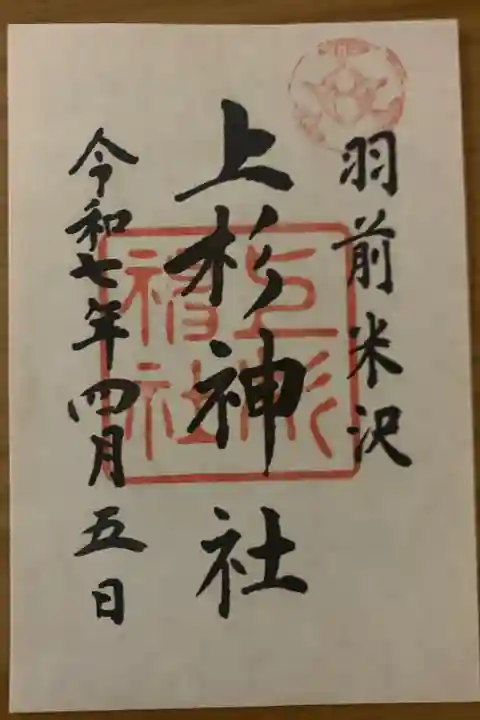 羽前米沢
上杉神社
上杉神社
令和七年四月五日